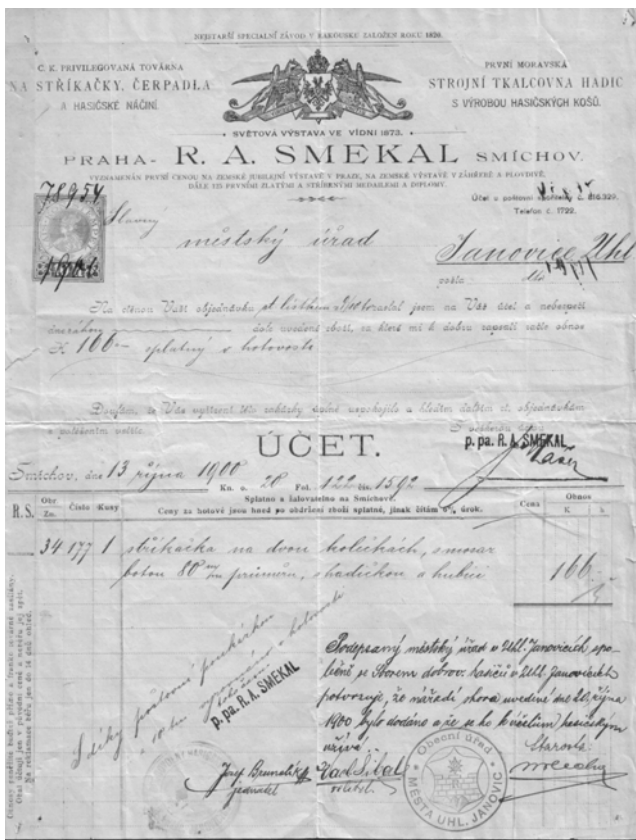 NEJSTARŠÍ SPECIALNÍ ZÁVOD V RAKOUSKU ZALOŽEN ROKU 1820.
C. K. PRIVILEGOVANÁ TOVÁRNA
NA STŘÍKAČKY, ČERPADLA
A HASIČSKÉ NÁČINÍ.
PRVNÍ MORAVSKÁ
STROJNÍ TKALCOVNA HADIC
S VÝROBOU HASIČSKÝCH KOŠŮ.
SVĚTOVÁ VÝSTAVA VE VÍDNI 1873.
PRAHA- R. A. SMEKAL SMÍCHOV.
VYZNAMENÁN PRVNÍ CENOU NA ZEMSKÉ JUBILEJNÍ VÝSTAVĚ V PRAZE, NA ZEMSKÉ VÝSTAVĚ V ZÁHŘEBĚ A PLOVDIVĚ.
DÁLE 125 PRVNÍMI ZLATÝMI A STŘÍBRNÝMI MEDAILEMI A DIPLOMY.
Účet u poštovní spořitelny č. 816.329.
Telefon č. 1722.
78954
Slavný
městský úřad
Janovice Uhl
pošta
Na ctěnou Vaši objednávku ct. listem odeslal jsem na Váš účet a nebezpečí
dnešního dole uvedené zboží, za které mi k dobru zapsati račte obnos
K 166 splatný v hotovosti
Doufám, že Vás vyřízení této zakázky úplně uspokojilo a hledám dalším ct. objednávkám
S veškerou úctou
p. pa. R. A. SMEKAL
ÚČET.
Smíchov, dne 13 října 1900
Kn. o. 20 Fol. 122 čís. 1592
Splatno a žalovatelno na Smíchově.
Ceny za hotové jsou hned po obdržení zboží splatné, jinak čítám 6% úrok.
R. S. Obr. Zn. Číslo Kusy Cena Obnos K h
34 177 1 stříkačka na dvou kolečkách, s mosaz
botou 80 m/m průměru, s hadičkou a hubicí 166
S díky poštovní poukázkou
p. pa. R. A. SMEKAL
Podepsaný městský úřad v Uhl. Janovicích spo-
lečně se Sborem dobrov. hasičů v Uhl. Janovicích
potvrzuje, že nářadí shora uvedené dne 20. října
1900 bylo dodáno a že se ho k účelům hasičským
užívá.
Starosta:
Josef Brunclík
jednatel
Karl Šibal
velitel.
Obecní úřad
MĚSTA UHL. JANOVIC